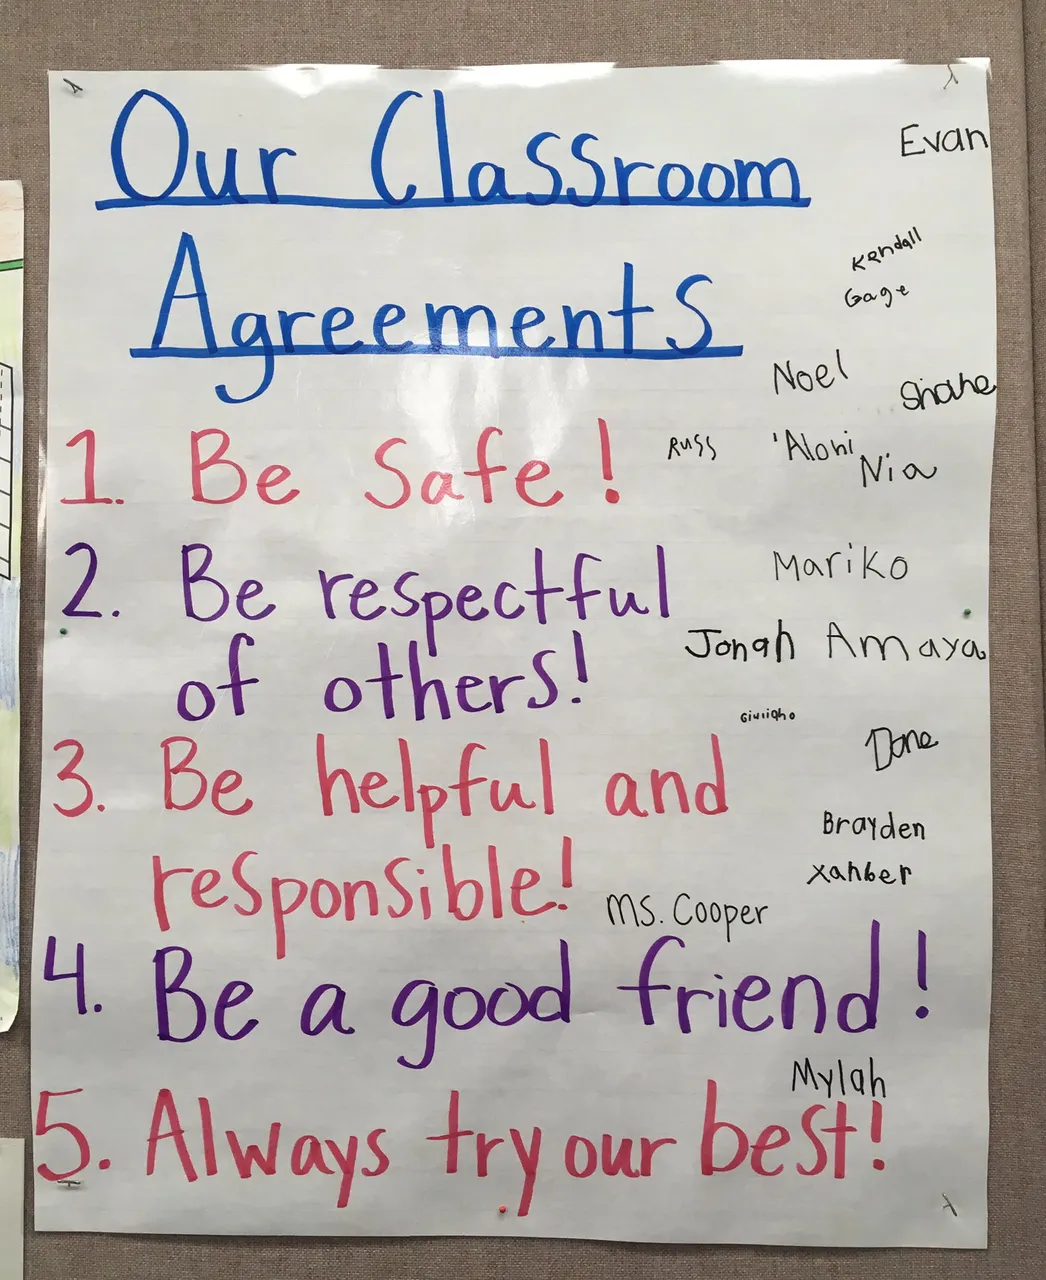 Our Classroom
Agreements
Evan
Kendall
Gage
Noel
Shane
1. Be Safe!
Russ
'Aloni
Nia
2. Be respectful
of others!
Mariko
Jonah
Amaya
3. Be helpful and
responsible!
Dane
Brayden
Xander
Ms. Cooper
4. Be a good friend!
Mylah
5. Always try our best!